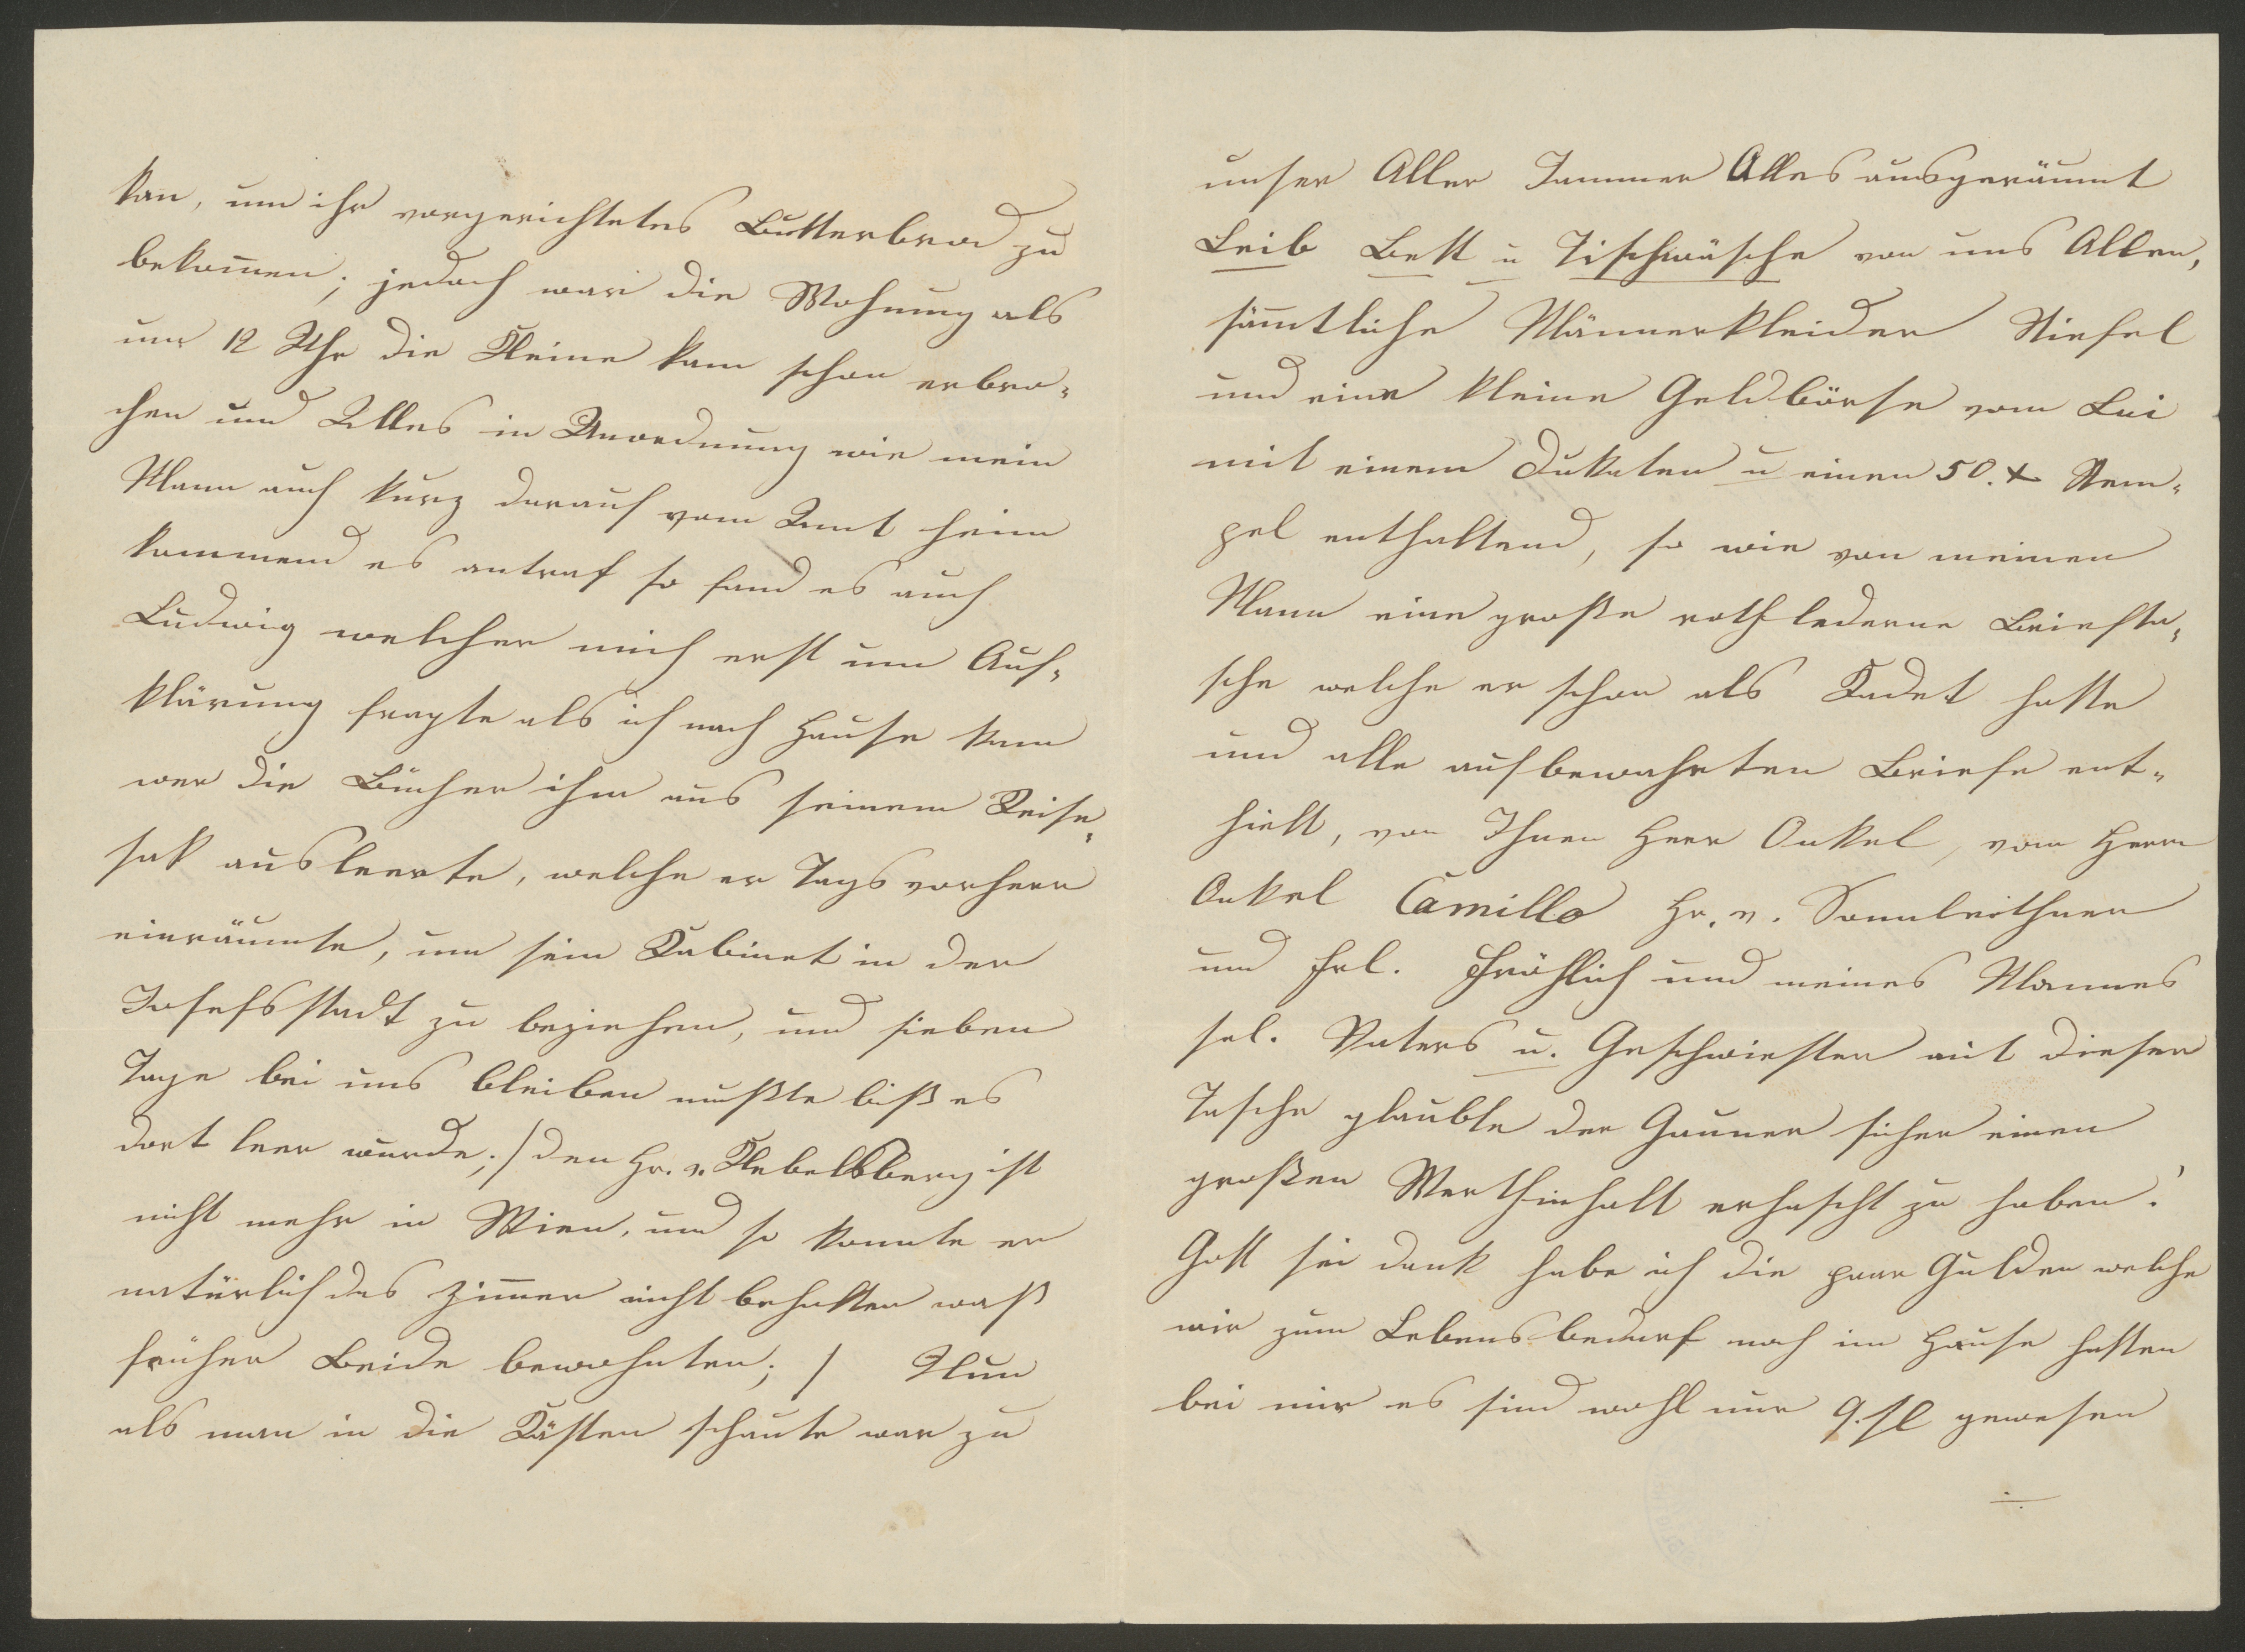 kan̅, um ihr vorgerichtetes Butterbrod zu
bekom̅en; jedoch war die Wohnung als
um 12 Uhr die Kleine kam schon erbro-
chen und Alles in Unordnung wie mein
Mann auch kurz darauf vom Amt heim
kommend es antraf so fand es auch
Ludwig welcher mich erst um Auf-
klärung fragte als ich nach Hause kam
wer die Bücher ihm aus seinem Reise-
sak ausleerte, welche er Tags vorherr
einräumte, um sein Kabinet in der
Josefsstadt zu beziehen, und sieben
Tage bei uns bleiben mußte biß es
dort leer wurde; / den Hr. v. Klebelsberg ist
nicht mehr in Wien, und so konnte er
natürlich das Zim̅er nicht behalten waß
früher Beide bewohnten; / Nun
als man in die Kästen schaute war zu
unser Aller Jammer Alles ausgeräumt
Leib Bett u Tischwäsche von uns Allen,
säm̅tliche Männerkleider Stiefel
und eine kleine Geldbörse vom Lui
mit einem Dukaten u einen 50. x Stem-
pel enthaltend, so wie von meinen
Mann eine große roth lederne Briefta-
sche welche er schon als Kadet hatte
und alle aufbewahrten Briefe ent-
hielt, von Ihnen Herr Onkel, vom Herrn
Onkel Camillo Hr. v. Sonnleithner
und Frl. Fröhlich und meines Mannes
sel. Vaters u. Geschwister mit dieser
Tasche glaubte der Gauner sicher einen
großen Werthinhalt erhascht zu haben!
Gott sei dank habe ich die paar Gulden welche
wir zum Lebensbedarf noch im Hause hatten
bei mir es sind wohl nur 9. fl gewesen